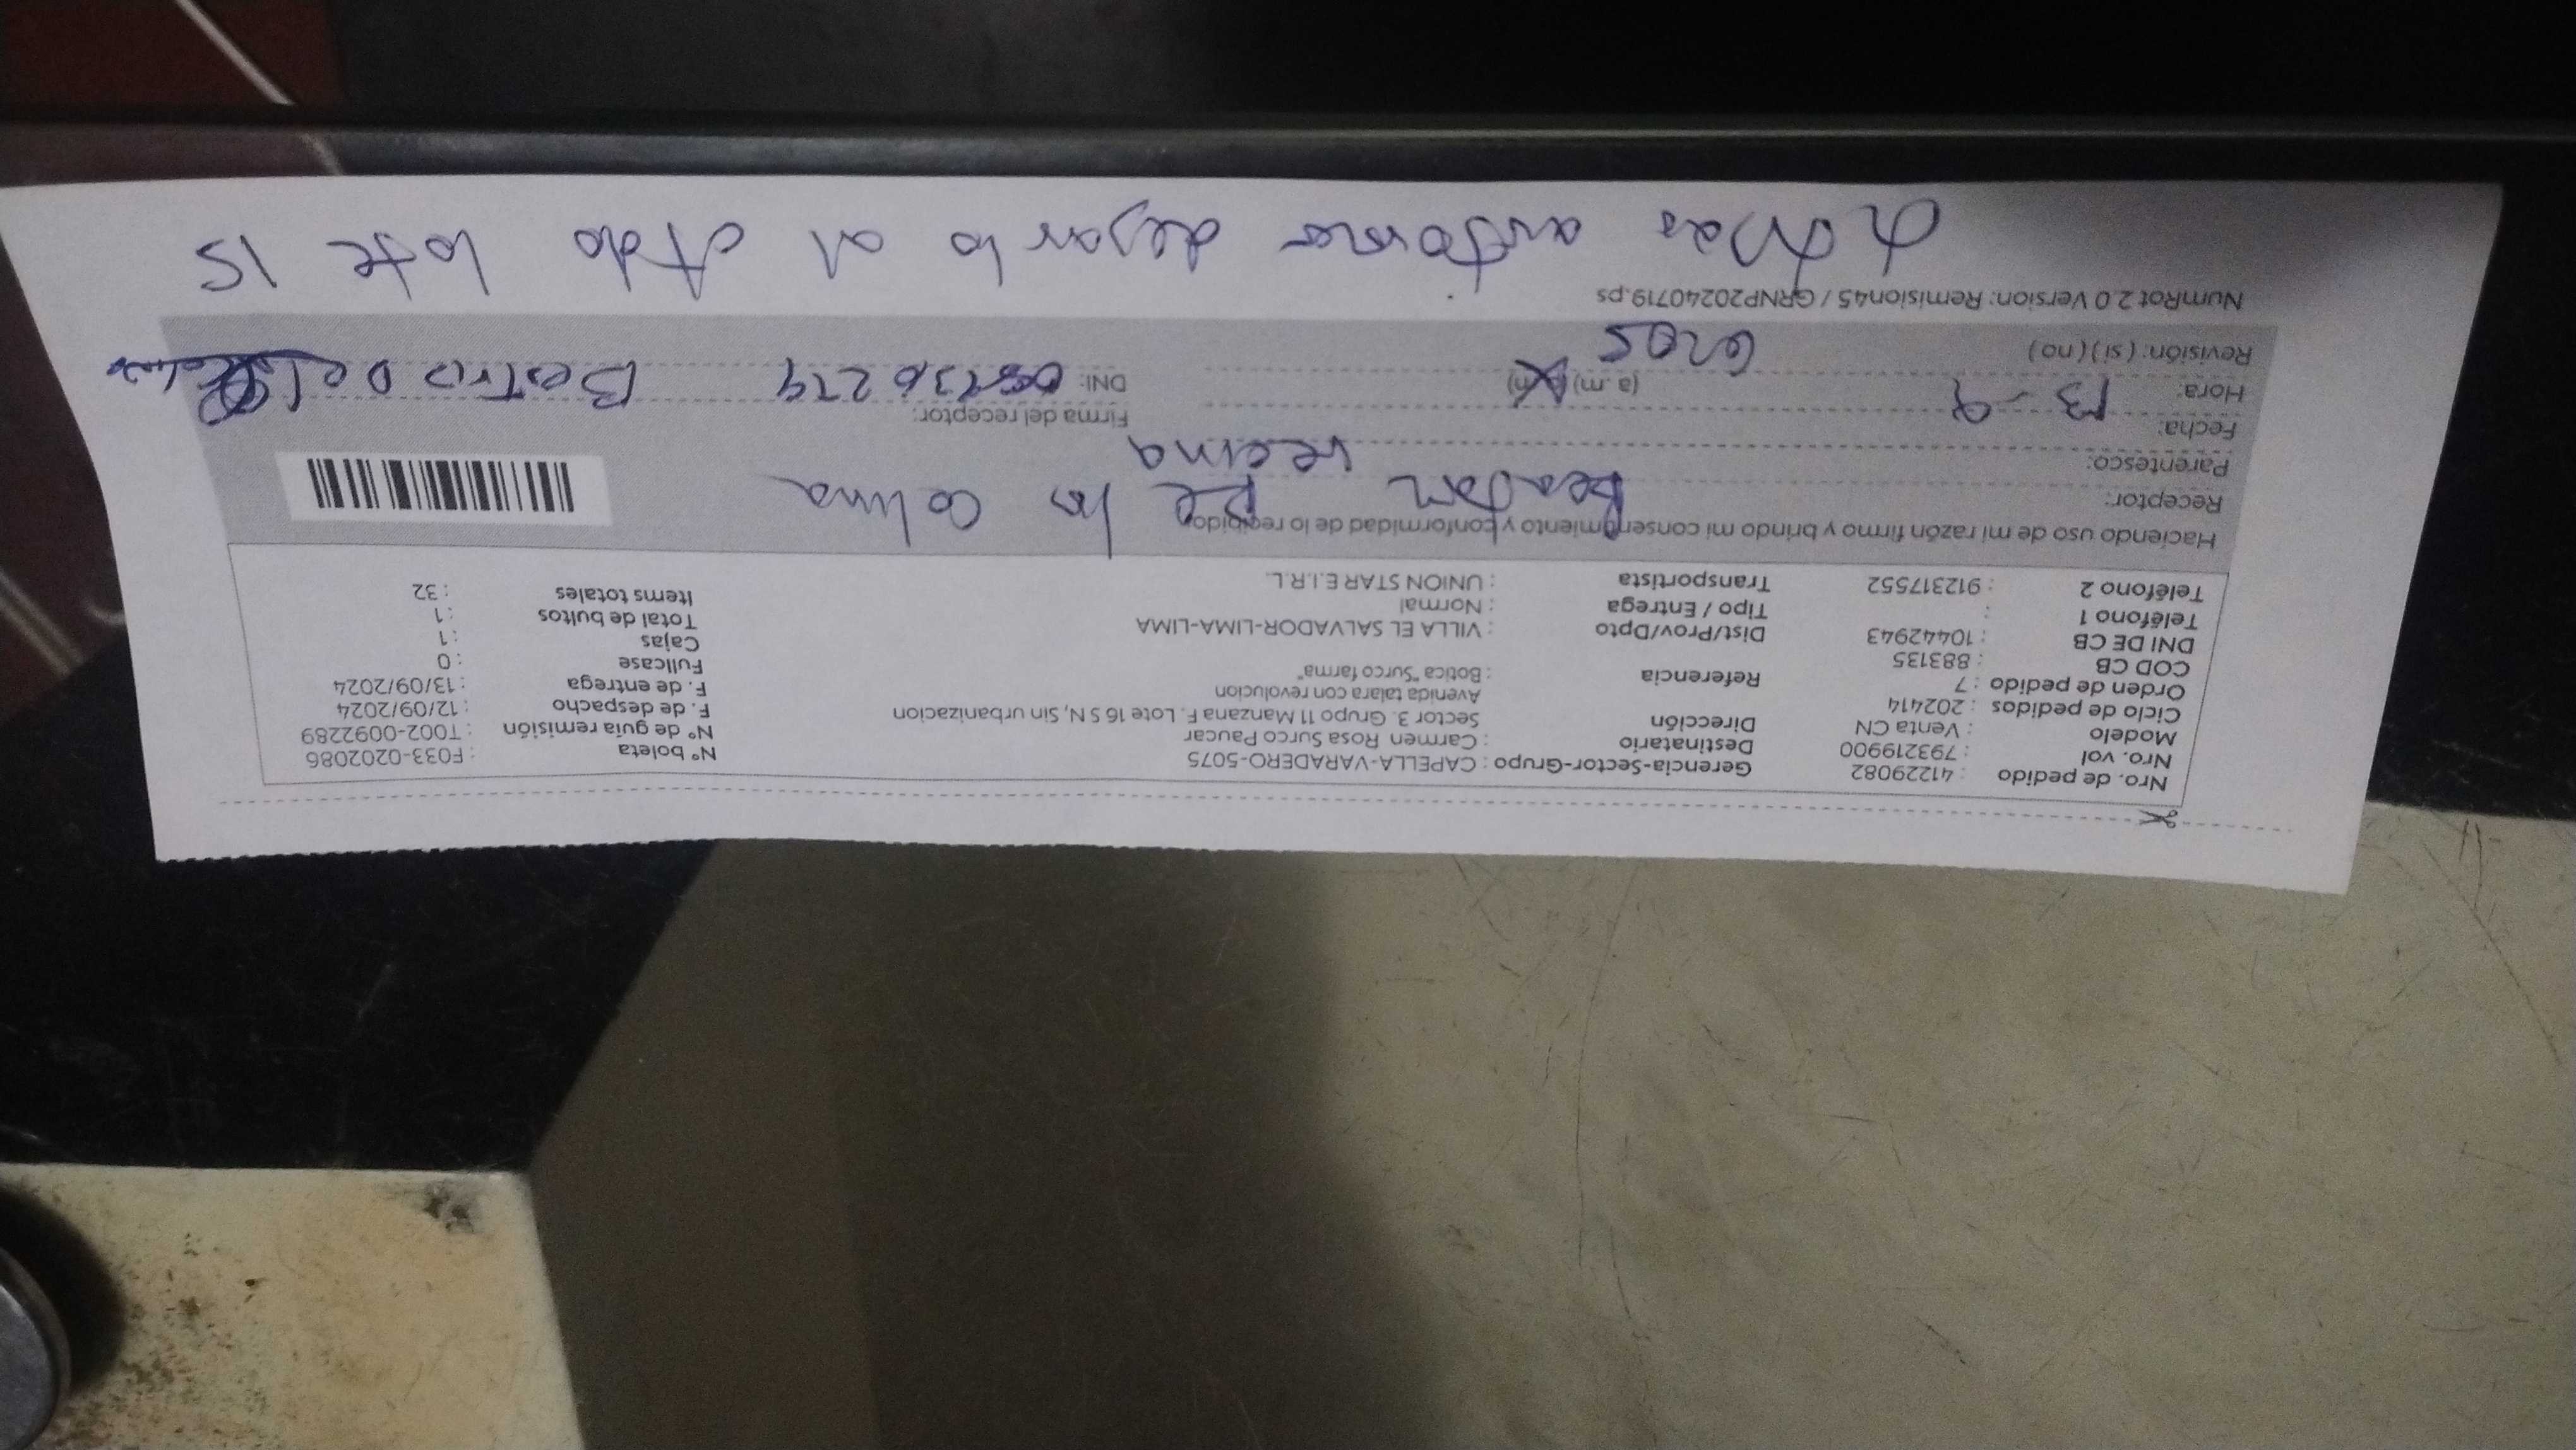 Nro. de pedido : 41229082 Gerencia-Sector-Grupo : CAPELLA-VARADERO-5075 N° boleta : F033-0202086
Nro. vol : 793219900 Destinatario : Carmen Rosa Surco Paucar N° de guia remisión : T002-0092289
Modelo : Venta CN Dirección Sector 3. Grupo 11 Manzana F. Lote 16 S N, Sin urbanizacion F. de despacho : 12/09/2024
Ciclo de pedidos : 202414 Avenida talara con revolucion F. de entrega : 13/09/2024
Orden de pedido : 7 Referencia : Botica "Surco farma" Fullcase : 0
COD CB : 883135 Dist/Prov/Dpto : VILLA EL SALVADOR-LIMA-LIMA Cajas : 1
DNI DE CB : 10442943 Tipo / Entrega : Normal Total de bultos : 1
Teléfono 1 : Transportista : UNION STAR E.I.R.L. Items totales : 32
Teléfono 2 : 912317552
Haciendo uso de mi razón firmo y brindo mi consentimiento y conformidad de lo recibido
Receptor: De la colina
Parentesco: vecina
Fecha: 13-9 Firma del receptor:
Hora: (a.m) DNI:
Revisión: ( si ) ( no )
NumRot 2.0 Version: Remision45 / GRNP20240719.ps
dejarlo al lote 15